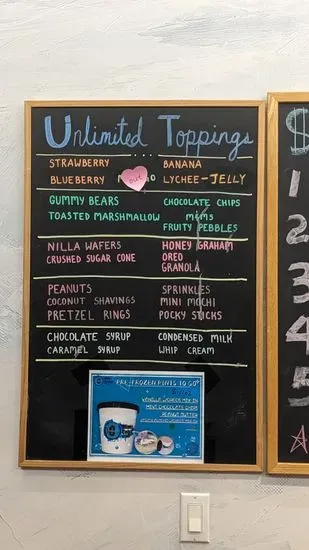 Unlimited Toppings
STRAWBERRY BANANA
BLUEBERRY OUT LYCHEE-JELLY
GUMMY BEARS CHOCOLATE CHIPS
TOASTED MARSHMALLOW M&MS
FRUITY PEBBLES
NILLA WAFERS HONEY GRAHAM
CRUSHED SUGAR CONE OREO
GRANOLA
PEANUTS SPRINKLES
COCONUT SHAVINGS MINI MOCHI
PRETZEL RINGS POCKY STICKS
CHOCOLATE SYRUP CONDENSED MILK
CARAMEL SYRUP WHIP CREAM
PRE-FROZEN PINTS TO GO
VANILLA W/OREO MIX IN
MINT CHOCOLATE CHIP
PEANUT BUTTER
$
1
2
3
4
5